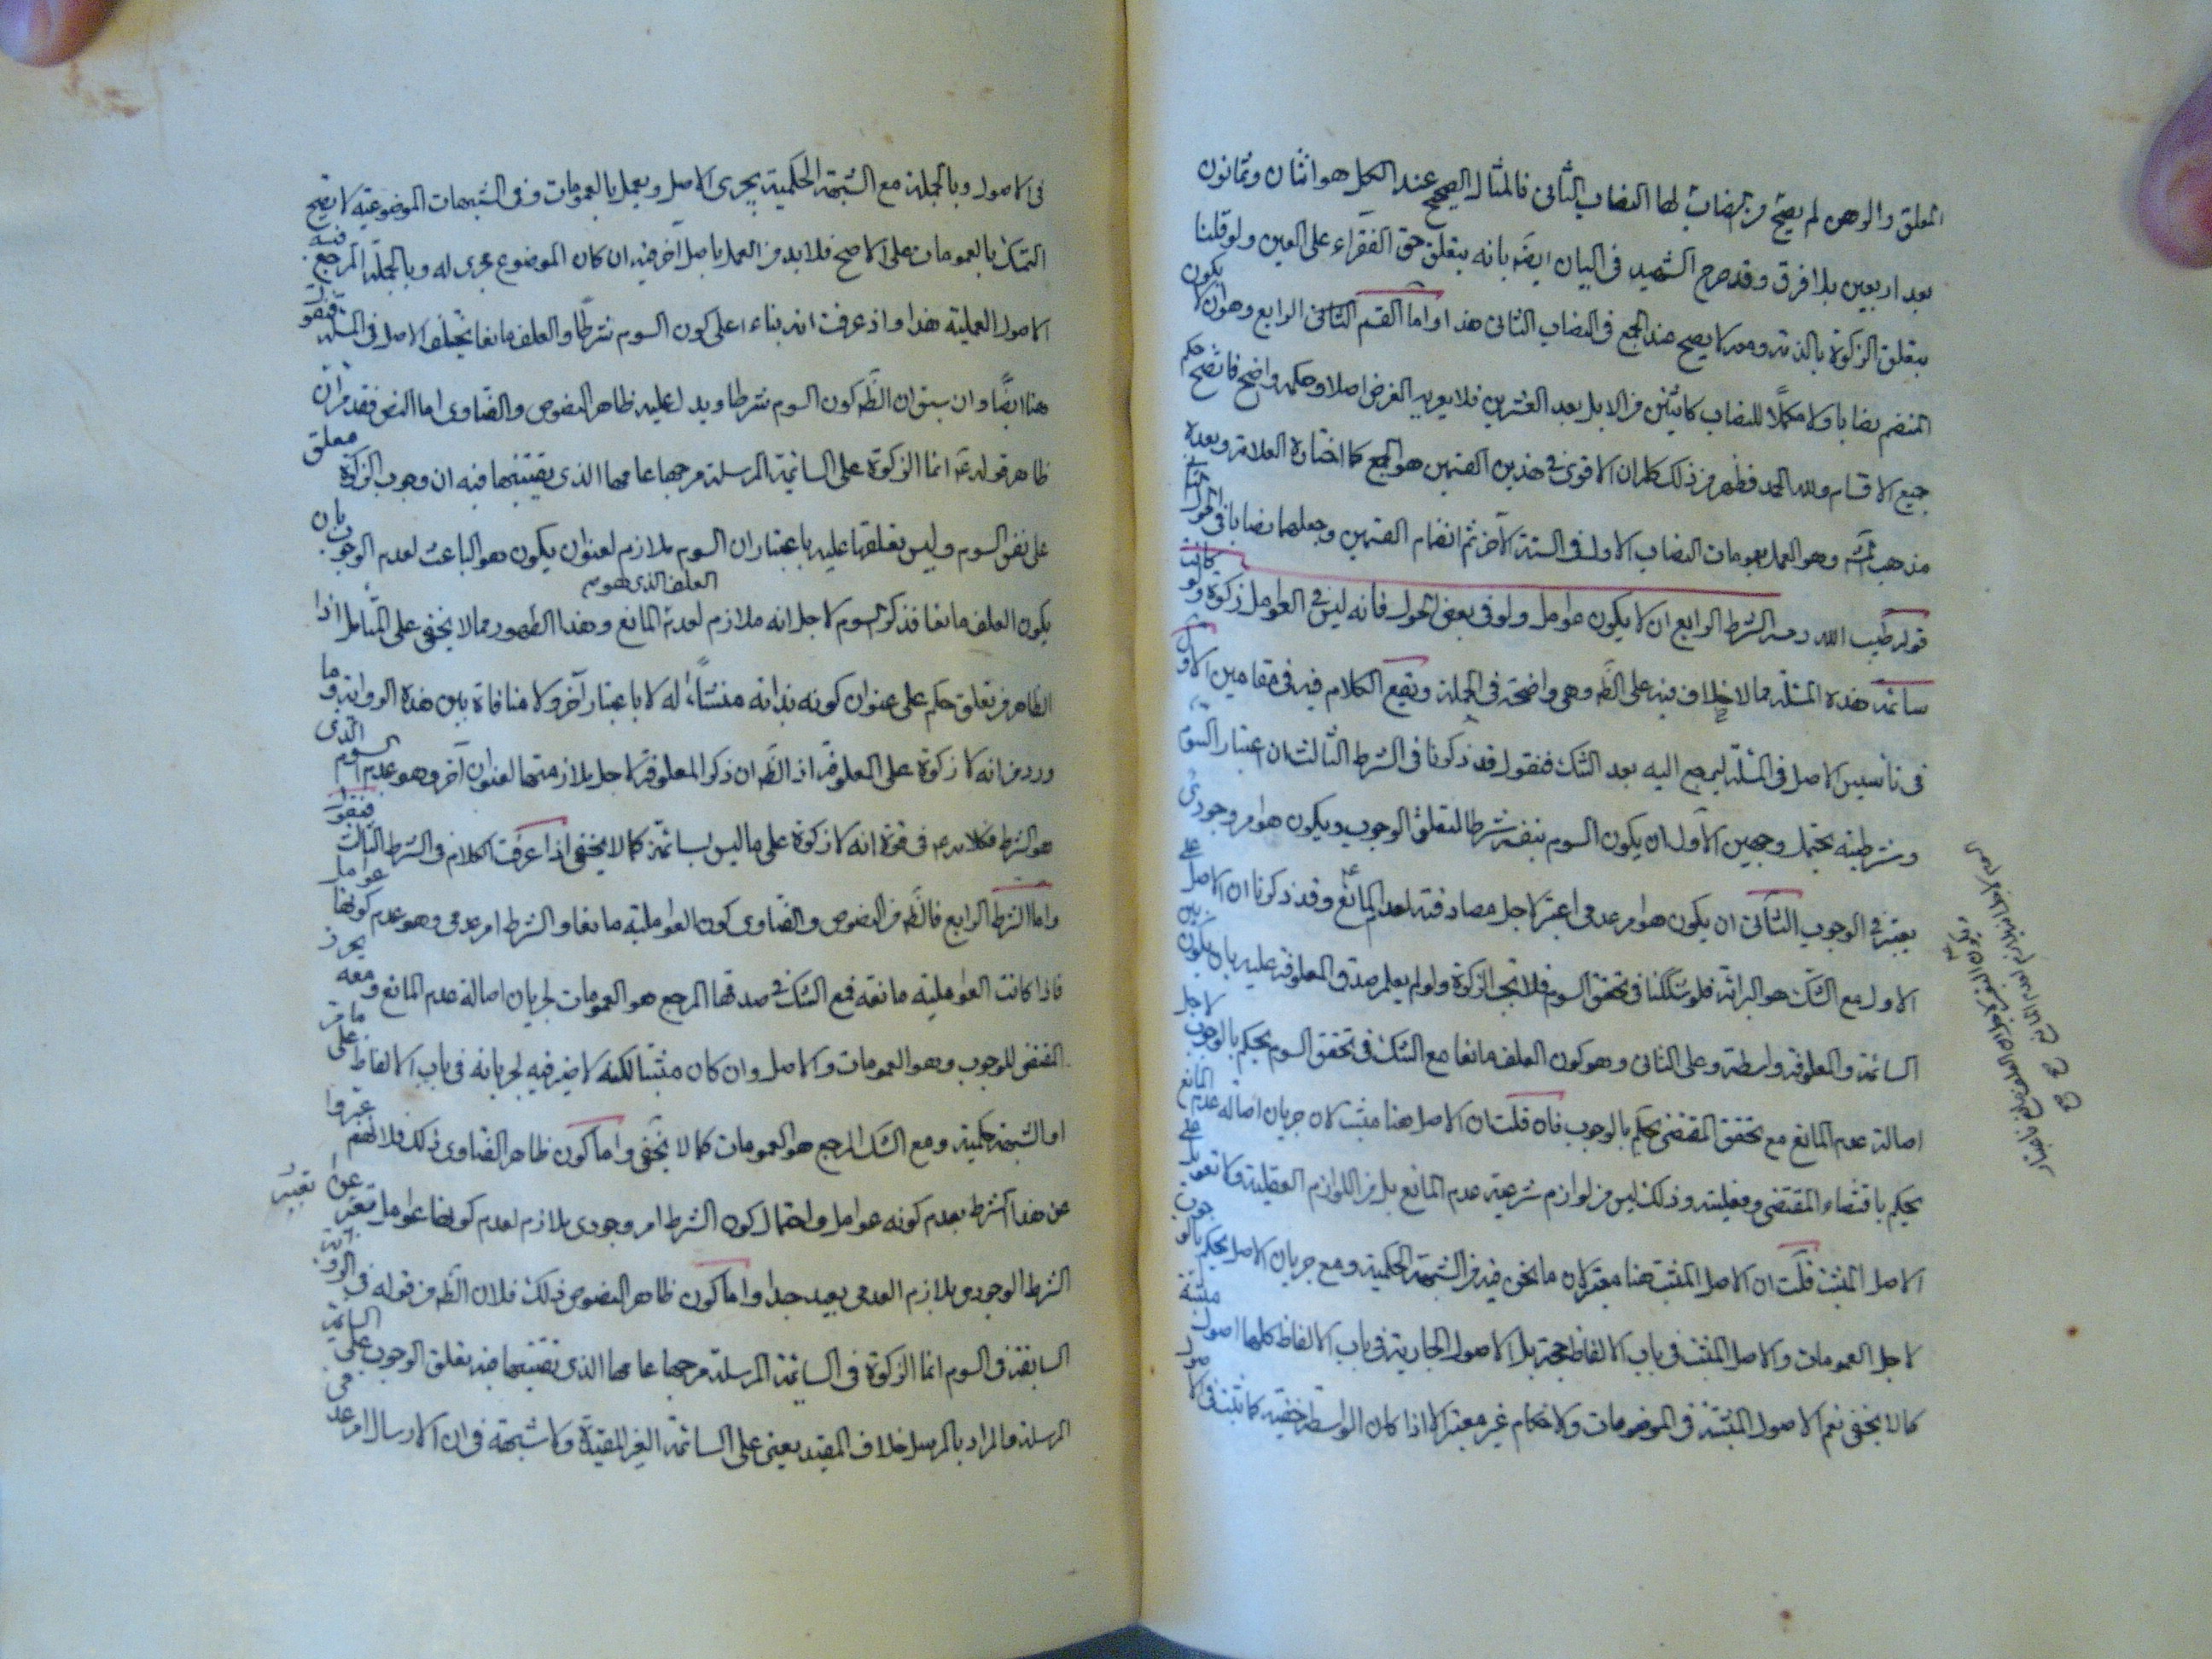 المعلق والوهن لم يصح وجه لها النصاب الثانى فالمثال الصحيح عند الكل هو اثنان وثمانون
بعد اربعين بلا فرق وقد صرح الشهيد فى البيان ايضا بانه يتعلق حق الفقراء على العين ولو قلنا
بتعلق الزكوة بالذمة لا يصح عند الجمع فى النصاب الثانى هذا واما القسم الثانى الرابع وهو ان لا يكون
المنضم نصابا ولا مكملا للنصاب كاثنين من الابل بعد العشرين فلا يعر به الفرض اصلا وحكمه واضح فاتضح حكم
جميع الاقسام ولله الحمد فظهر من ذلك كله ان الاقوى فى هذين القسمين هو الجمع كما اختاره العلامة وبعده
مذهب وهو العمل بعمومات النصاب الاول فى السنة الاخر ثم انضمام القسمين وجعلهما نصابا فى الحول
قوله طيب الله رمسه الشرط الرابع ان لا يكون عوامل ولو فى بعض الحول فانه ليس فى العوامل زكوة ولو كانت
سائمة هذه المسئلة مما لا خلاف فيه على الظ وهى واضحة فى الجملة ويقع الكلام فيه فى مقامين الاول
فى تأسيس الاصل فى المسئلة ليرجع اليه بعد الشك فنقول قد ذكرنا فى الشرط الثالث ان اعتبار السوم
وشرطيته يحتمل وجهين الاول ان يكون السوم بنفسه شرطا لتعلق الوجوب ويكون هو امر وجودى
يعتبر فى الوجوب الثانى ان يكون هو امر عدمى اعتبر لاجل مصادفته لعدم المانع وقد ذكرنا ان الاصل على
الاول مع الشك هو البرائة فلو شككنا فى تحقق السوم فلا تجب الزكوة ولو لم يعلم صدق المعلوفة عليه بان يكون بين
السائمة والمعلوفة واسطة وعلى الثانى وهو كون العلف مانعا مع الشك فى تحقق السوم يحكم بالوجوب لاجل
اصالة عدم المانع مع تحقق المقتضى يحكم بالوجوب فان قلت ان الاصل هنا مثبت لان جريان اصالة عدم المانع
يحكم باقتضاء المقتضى وفعليته وذلك ليس من لوازم شرعية عدم المانع بل من اللوازم العقلية ولا تعويل على
الاصل المثبت قلت ان الاصل المثبت هنا معتبر لان ما نحن فيه من الشبهة الحكمية ومع جريان الاصل يحكم بالوجوب
لاجل العمومات والاصل المثبت فى باب الالفاظ حجة بل الاصول الجارية فى باب الالفاظ كلها اصول مثبتة
كما لا يخفى نعم الاصول المثبتة فى الموضوعات والاحكام غير معتبر الا اذا كان الواسطة خفية كما ثبت فى الاصول
فى الاصول وبالجملة مع الشبهة الحكمية يجرى الاصل ويعمل بالعمومات وفى الشبهات الموضوعية لا يصح
التمسك بالعمومات على الاصح فلا بد من العمل باصل آخر فيه ان كان الموضوع مجرى له وبالجملة المرجع فيه
الاصول العملية هذا واذ عرفت انه بناء اعلى كون السوم شرطا والعلف مانعا يختلف الاصل فى المسئلة فنقول
هنا ايضا وان سبق ان الظ كون السوم شرطا ويدل عليه ظاهر النصوص والفتاوى اما النص فقد مر ان
ظاهر قوله ع انما الزكوة على السائمة المرسلة مرجها عامها الذى يقتنيها فيه ان وجوب الزكوة معلق
على نفس السوم وليس تعلقها عليه باعتبار ان السوم ملازم لعنوان يكون هو الباعث لعدم الوجوب بان
العلف الذى هو
يكون العلف مانعا فذكر السوم لاجل انه ملازم لعدم المانع وهذا الظهور مما لا يخفى على المتامل اذا
الظاهر من تعلق حكم على عنوان كونه بذاته منشاء له لا باعتبار آخر ولا منافاة بين هذه الرواية وما
ورد من انه لا زكوة على المعلوفة اذ الظ ان ذكر المعلوفة لاجل ملازمتها لعنوان آخر وهو عدم السوم الذى
هو الشرط فكلامه ع فى قوة انه لا زكوة على ما ليس بسائمة كما لا يخفى اذا عرفت الكلام فى الشرط الثالث فنقول
واما الشرط الرابع فالظ من النصوص والفتاوى كون العواملية مانعا والشرط امر عدمى وهو عدم كونها عوامل
فاذا كانت العواملية مانعة فمع الشك فى صدقها المرجع هو العمومات لجريان اصالة عدم المانع ومعه يحرز
المقتضى للوجوب وهو العمومات والاصل وان كان مثبتا لكنه لا ضير فيه لجريانه فى باب الالفاظ على ما مر
اما الشبهة حكمية ومع الشك المرجع هو العمومات كما لا يخفى واما كون ظاهر الفتاوى ذلك فلانهم عبروا
عن هذا الشرط بعدم كونه عوامل واحتمال كون الشرط امر وجودى ملازم لعدم كونها عوامل
الشرط الوجودى بلازم العدمى بعيد جدا واما كون ظاهر النصوص ذلك فلان الظ من قوله فى الرواية
السابقة فى السوم انما الزكوة فى السائمة المرسلة مرجها عامها الذى تقتنيها فيه تعلق الوجوب على السائمة
المرسلة والمراد بالمرسل خلاف المقيد يعنى على السائمة الغير المقيدة ولا شبهة فى ان الارسال امر عدمى